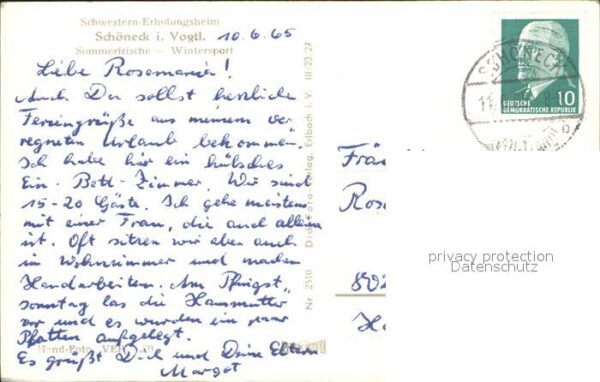 Schwestern-Erholungsheim
Schöneck i. Vogtl. 10.6.65
Sommerfrische — Wintersport
Liebe Rosemarie!
Auch Du sollst herzliche
Feriengrüße aus meinem ver
regneten Urlaub bekommen.
Ich habe hier ein hübsches
Ein-Bett-Zimmer. Wir sind
15-20 Gäste. Ich gehe meistens
mit einer Frau, die auch allein
ist. Oft sitzen wir aber auch
im Wohnzimmer und machen
Handarbeiten. Am Pfingst-
sonntag las die Hausmutter
vor und es wurden ein paar
Platten aufgelegt.
Es grüßt Dich und Deine Eltern
Margot
Hand-Foto
Nr. 2510 Verlag, Erlbach i. V. III/23/27
SCHÖNECK
DEUTSCHE
DEMOKRATISCHE REPUBLIK 10
Frä
Ros
802
Ha
privacy protection
Datenschutz